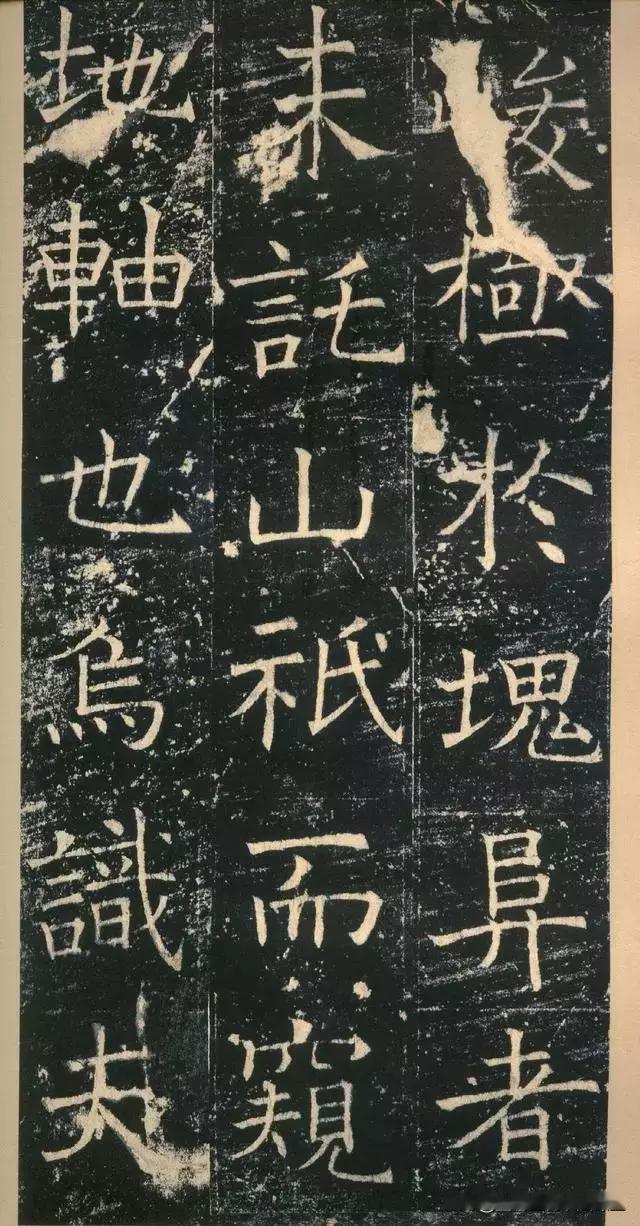 峻極於塊阜者
未託山祇而窺
地軸也烏識夫